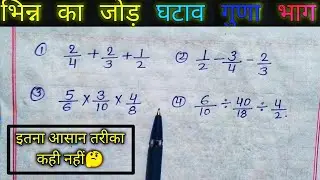 भिन्न का जोड़ घटाव गुणा भाग
① 2/4 + 2/3 + 1/2
② 1/2 - 3/4 - 2/3
③ 5/6 × 3/10 × 4/8
④ 6/10 ÷ 40/18 ÷ 4/2.
इतना आसान तरीका
कही नहीं🤔